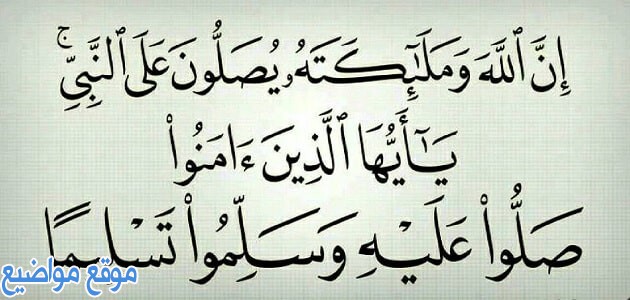 إِنَّ ٱللَّهَ وَمَلَٰٓئِكَتَهُۥ يُصَلُّونَ عَلَى ٱلنَّبِيِّۚ
يَٰٓأَيُّهَا ٱلَّذِينَ ءَامَنُوا۟
صَلُّوا۟ عَلَيْهِ وَسَلِّمُوا۟ تَسْلِيمًا
موقع مواضيع